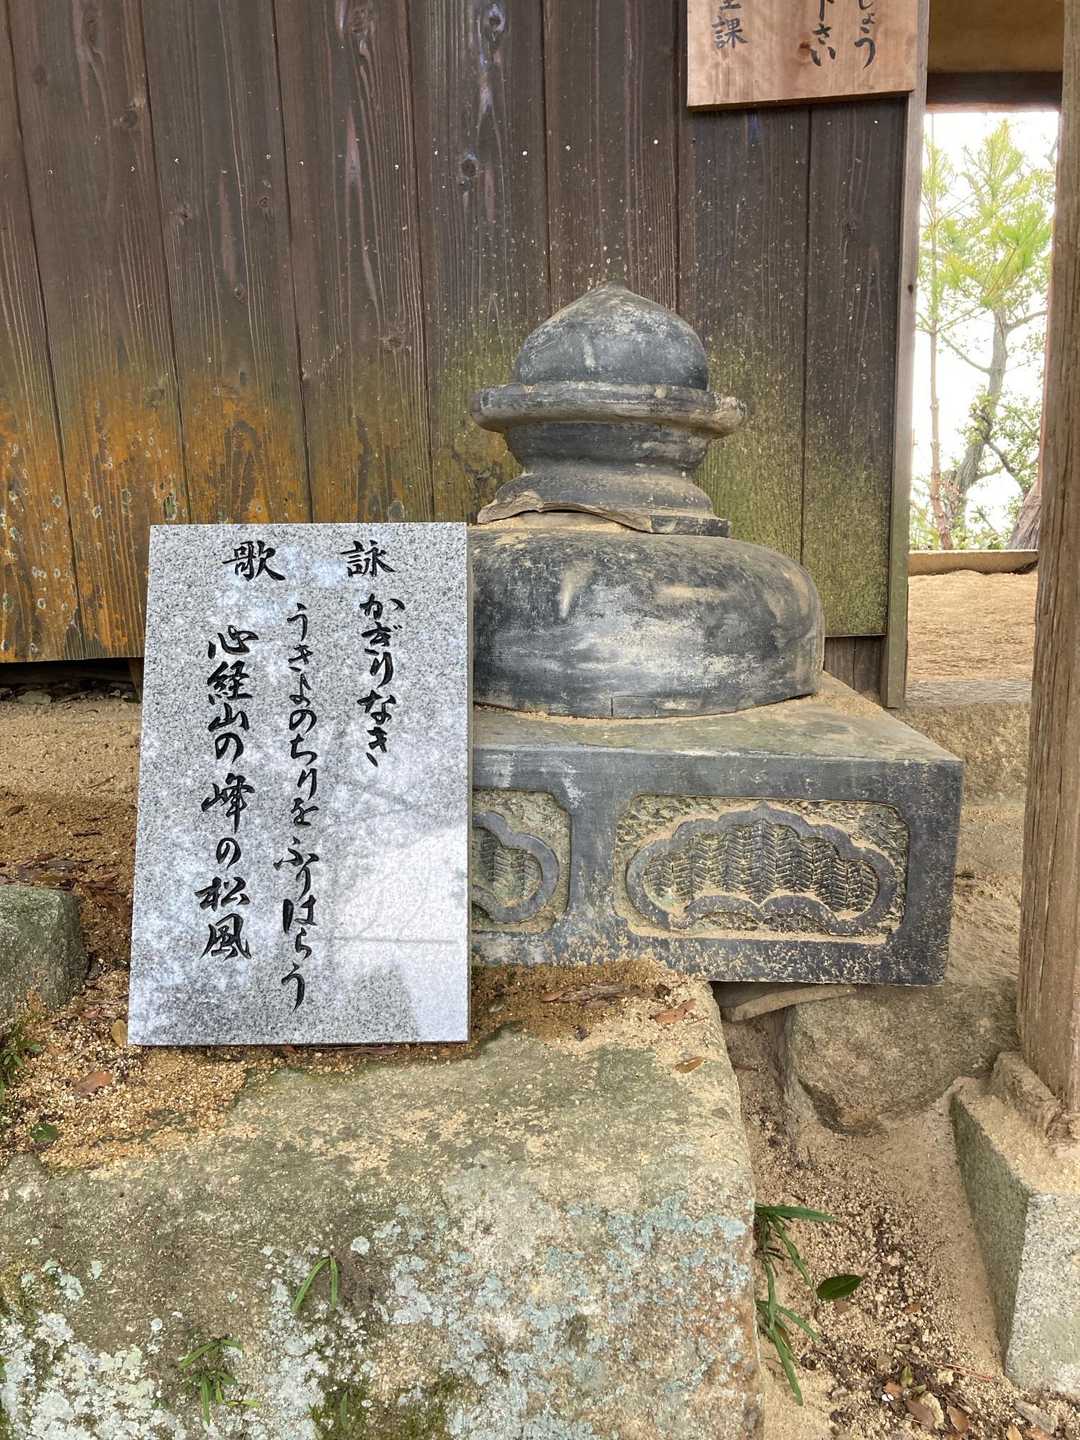 じょう
下さい
課
詠歌
かぎりなき
うきよのちりをふりはらう
心経山の峰の松風